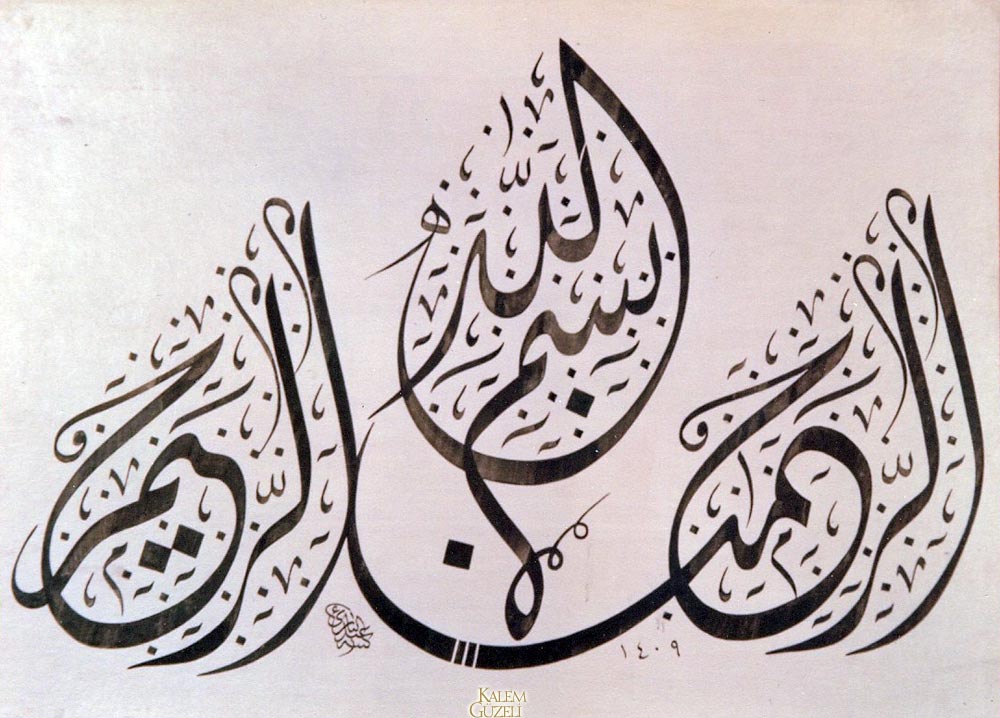 بسم الله
الرحمن الرحيم
١٤٠٩
KALEM
GÜZELİ